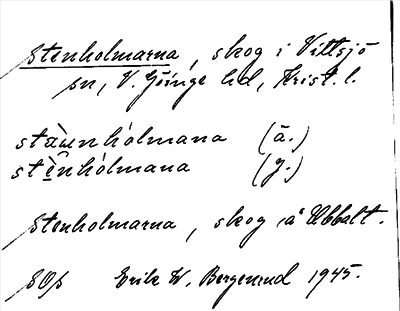 Stenholmarna, skog i Vittsjö
sn, V. Göinge hd, Krist. l.
stäunhólmana (ä.)
stènhólmana (y.)
Stenholmarna, skog å Ubbalt.
SOs Erik W. Bergenrud 1945.